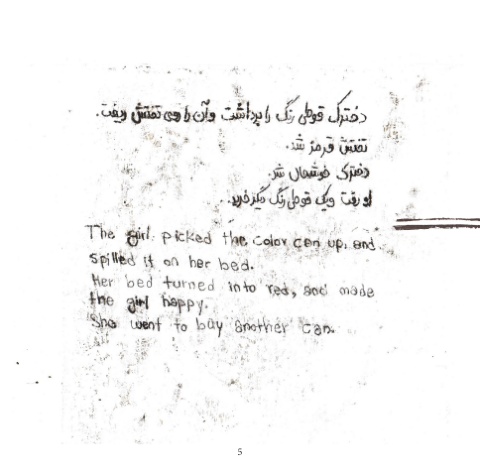 دخترک قوطی رنگ را برداشت و آن را روی تختش ریخت.
تختش قرمز شد.
دخترک خوشحال شد.
او رفت و یک قوطی رنگ دیگر خرید.
The girl picked the color can up, and
spilled it on her bed.
Her bed turned into red, and made
the girl happy.
She went to buy another can.
5